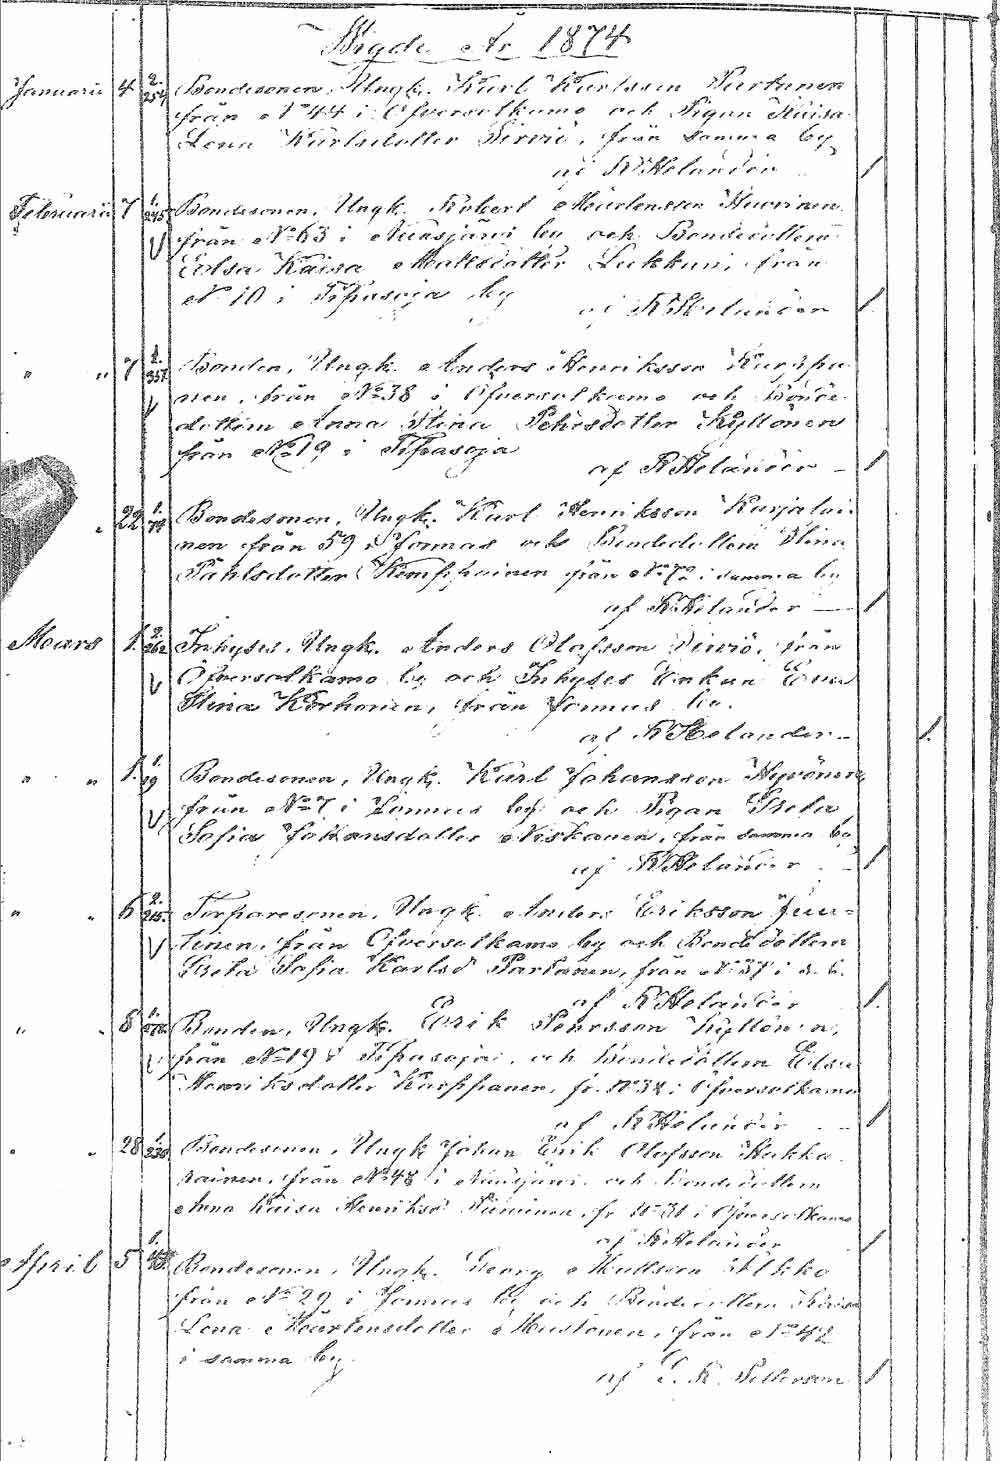 Vigde År 1874
Januarii 4 2. 254 Bondesonen, Ungk. Karl Karlsson Partanen
från No 44 i Öfversotkamo och Pigan Kaisa
Lena Karlsdotter Sirviö, från samma by
af K Helander 1
Februarii 7 1. Bondesonen, Ungk. Robert Mårtensson Huurinen
från No 63 i Nuasjärvi by och Bondedottern
Edsa Kaisa Mattsdotter Lukkari, från
No 10 i Tipasoja by
af K Helander 1.
" " 7 2. 357 Bonden, Ungk. Anders Henriksson Karppa
nen, från No 38 i Öfversotkamo och Bonde
dottern Anna Stina Pehrsdotter Kyllönen
från No 19 i Tipasoja
af K Helander — 1
" 22 1. Bondesonen, Ungk. Karl Henriksson Karjalai
nen från 59 i Jormas och Bondedottern Stina
Påhlsdotter Kemppainen från No 72 i samma by
af K Helander — 1
Mars 1. 2. 262 Inhyses, Ungk. Anders Olofsson Sirviö, från
Öfversotkamo by och Inhyses Enkan
Stina Korhonen, från Jormus by.
af K Helander — 1.
" " 1. 1. 19 Bondesonen, Ungk. Karl Johansson Hyvönen
från No 7 i Jormus by och Pigan Greta
Sofia Johansdotter Niskanen, från samma by
af K Helander — 1
" " 6 2. 215. Torparesonen, Ungk. Anders Eriksson Juu=
tinen, från Öfversotkamo by och Bondedottern
Greta Sofia Karlsd Partanen, från No 37 i s. b.
af K Helander 1.
" " 8 1. Bonden, Ungk. Erik Pehrsson Kyllönen,
från No 19 i Tipasoja, och Bondedottern Edsa
Henriksdotter Karppanen, fr. No 38 i Öfversotkamo
af K Helander — 1
" " 28 1. 230 Bondesonen, Ungk Johan Erik Olofsson Hakka
rainen, från No 48 i Nuasjärvi och Bondedottern
Anna Kaisa Henriksd Piirainen, fr No 31 i Öfversotkamo
af K Helander 1
April 5 1. Bondesonen, Ungk. Georg Mattsson
från No 29 i Jormus by och Bondedottern Kaisa
Lena Mårtensdotter Mustonen, från No 42
i samma by
af K. Petterson 1